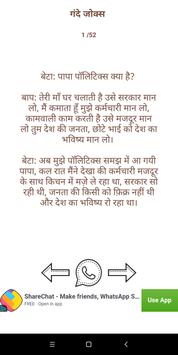 गंदे जोक्स
1 /52
बेटा: पापा पॉलिटिक्स क्या है?
बाप: तेरी माँ घर चलाती है उसे सरकार मान
लो, मैं कमाता हूँ मुझे कर्मचारी मान लो,
कामवाली काम करती है उसे मजदूर मान
लो तुम देश की जनता, छोटे भाई को देश का
भविष्य मान लो।
बेटा: अब मुझे पॉलिटिक्स समझ में आ गयी
पापा, कल रात मैंने देखा की कर्मचारी मजदूर
के साथ किचन में मज़े ले रहा था, सरकार सो
रही थी, जनता की किसी को फ़िक्र नहीं थी
और देश का भविष्य रो रहा था।
ShareChat - Make friends, WhatsApp S...
FREE Open in app
Use App